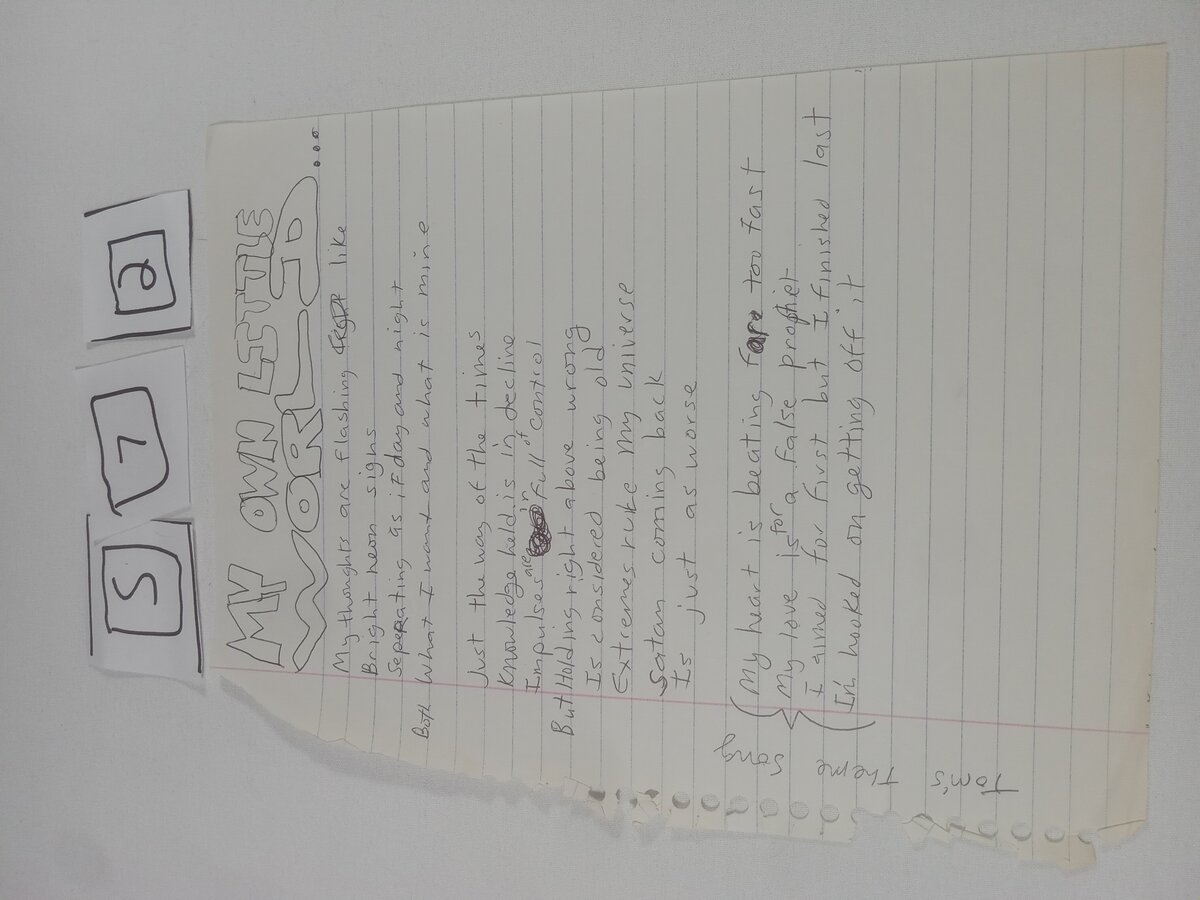 MY OWN LITTLE
WORLD...
My thoughts are flashing like
Bright neon signs
Seperating as if day and night
Both What I want and what is mine
Just the way of the times
Knowledge held is in decline
Impulses are in full of control
But Holding right above wrong
Is considered being old
Extremes ruke my universe
Satan coming back
Is just as worse
My heart is beating far too fast
My love is for a false prophet
I aimed for first but I finished last
I'm hooked on getting off it
Tom's
Theme
Song